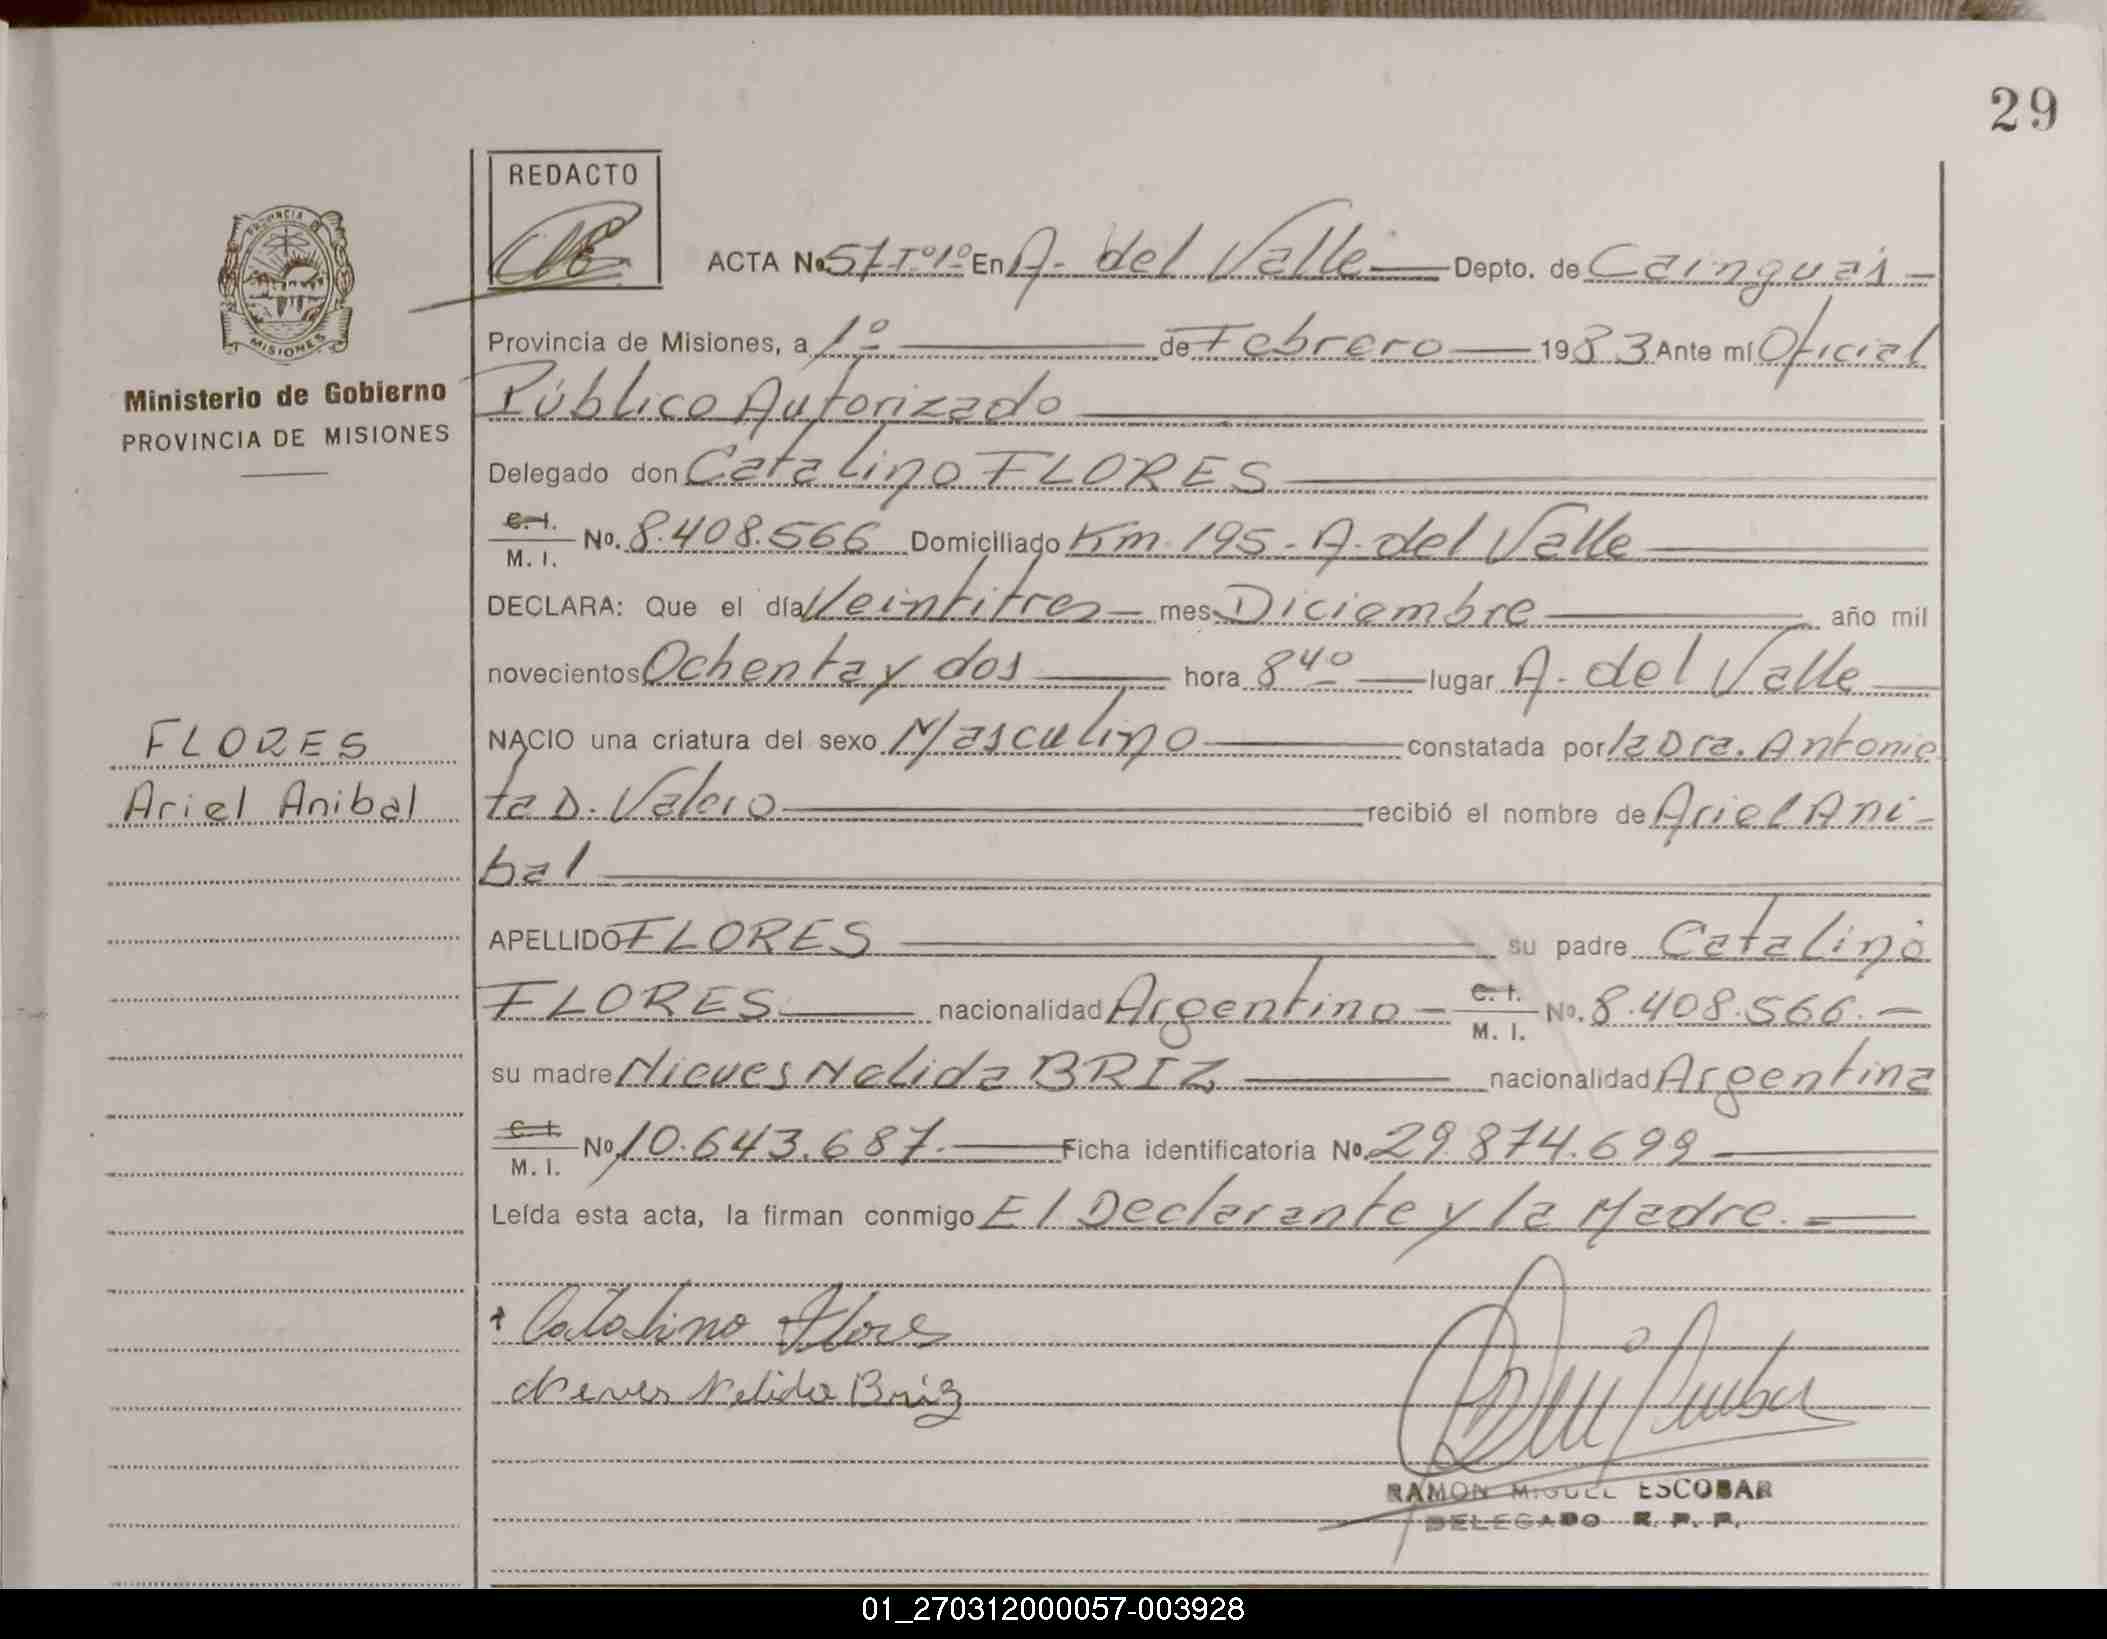 29
REDACTO
PROVINCIA DE
MISIONES
Ministerio de Gobierno
PROVINCIA DE MISIONES
FLORES
Ariel Anibal
ACTA No. 57 Tº1º En A. del Valle Depto. de Cainguás
Provincia de Misiones, a 1º de Febrero 1983 Ante mí Oficial
Público Autorizado
Delegado don Catalino FLORES
C. I. / M. I. No. 8.408.566 Domiciliado Km. 195 - A. del Valle
DECLARA: Que el día Veintitres mes Diciembre año mil
novecientos Ochenta y dos hora 8 40 lugar A. del Valle
NACIO una criatura del sexo Masculino constatada por la Dra. Antonie
ta D. Valero recibió el nombre de Ariel Ani-
bal
APELLIDO FLORES su padre Catalino
FLORES nacionalidad Argentino C. I. / M. I. No. 8.408.566.-
su madre Nieves Nelida BRIZ nacionalidad Argentina
C. I. / M. I. No. 10.643.687.- Ficha identificatoria No. 29.874.699
Leída esta acta, la firman conmigo El Declarante y la Madre.=
Catalino Flores
Nieves Nelida Briz
RAMON MIGUEL ESCOBAR
DELEGADO R. P. P.
01_270312000057-003928